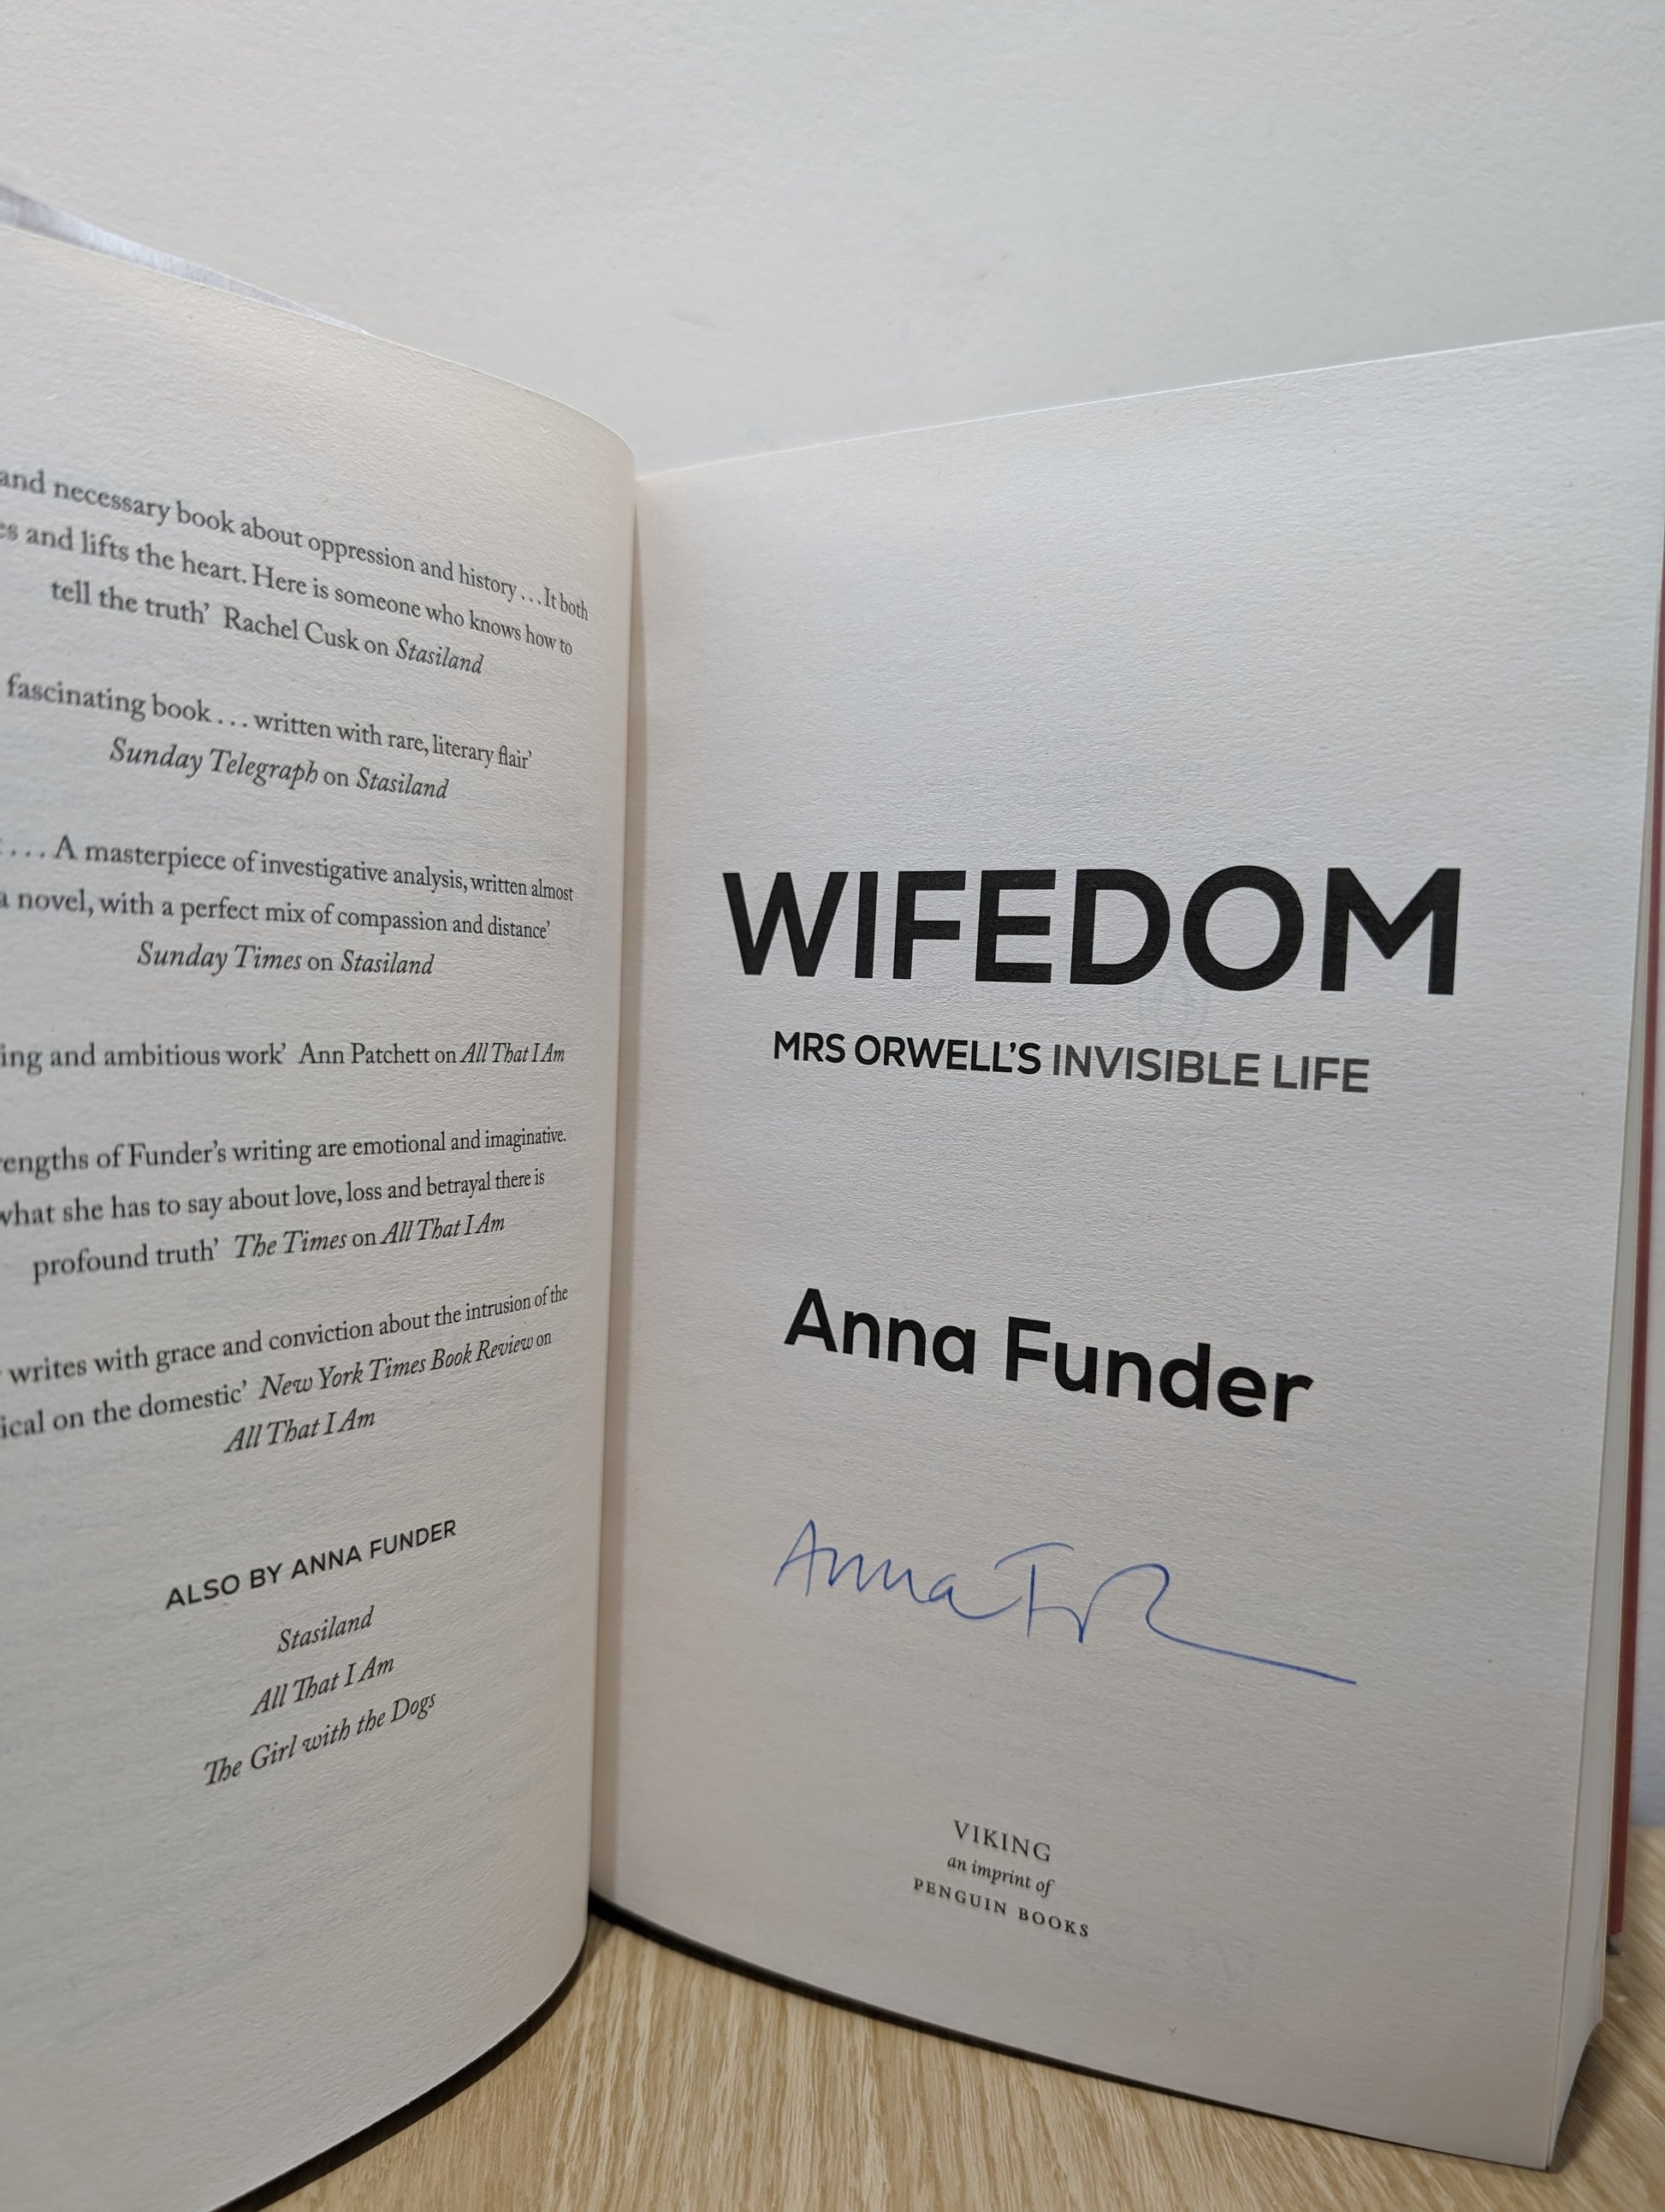 and necessary book about oppression and history . . . It both
and lifts the heart. Here is someone who knows how to
tell the truth’ Rachel Cusk on Stasiland
fascinating book . . . written with rare, literary flair’
Sunday Telegraph on Stasiland
. . . A masterpiece of investigative analysis, written almost
a novel, with a perfect mix of compassion and distance’
Sunday Times on Stasiland
and ambitious work’ Ann Patchett on All That I Am
of Funder’s writing are emotional and imaginative.
what she has to say about love, loss and betrayal there is
profound truth’ The Times on All That I Am
writes with grace and conviction about the intrusion of the
on the domestic’ New York Times Book Review on
All That I Am
ALSO BY ANNA FUNDER
Stasiland
All That I Am
The Girl with the Dogs
WIFEDOM
MRS ORWELL’S INVISIBLE LIFE
Anna Funder
Anna
VIKING
an imprint of
PENGUIN BOOKS